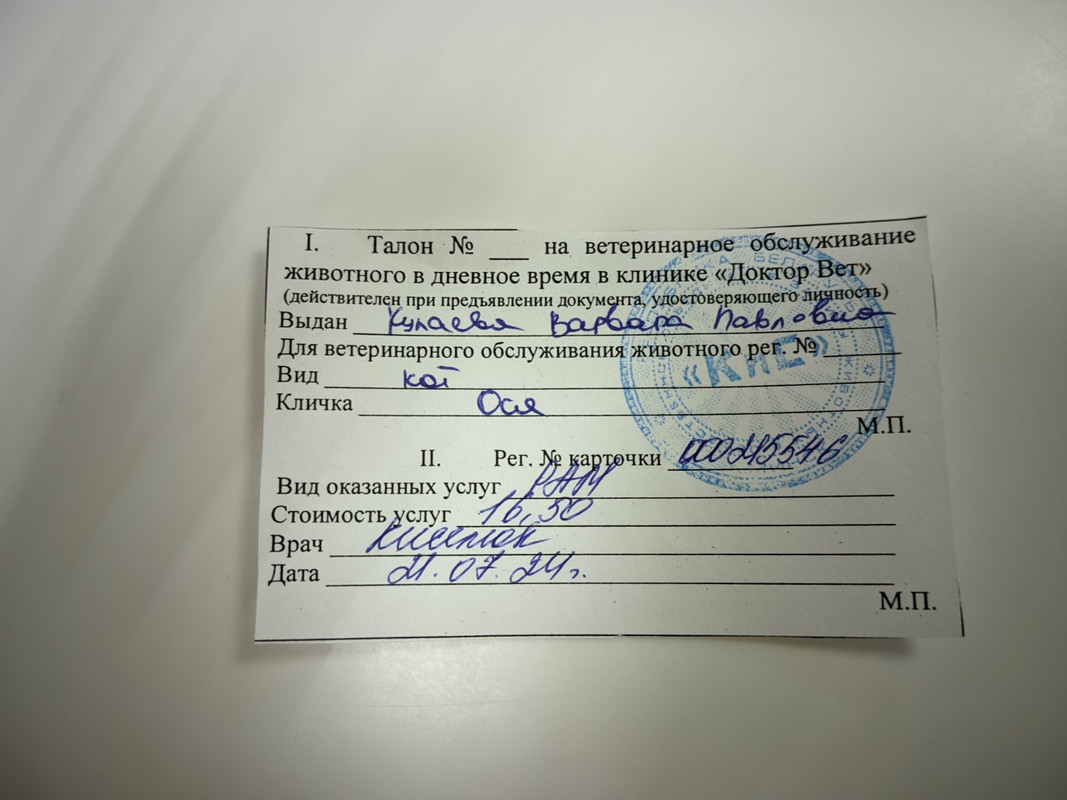 I. Талон № ___ на ветеринарное обслуживание
животного в дневное время в клинике «Доктор Вет»
(действителен при предъявлении документа, удостоверяющего личность)
Выдан Варвара Павловна
Для ветеринарного обслуживания животного рег. №
Вид кот
Кличка Ося
«КиЕ»
М.П.
II. Рег. № карточки 000215546
Вид оказанных услуг
Стоимость услуг 16,50
Врач
Дата 21.07.24г.
М.П.